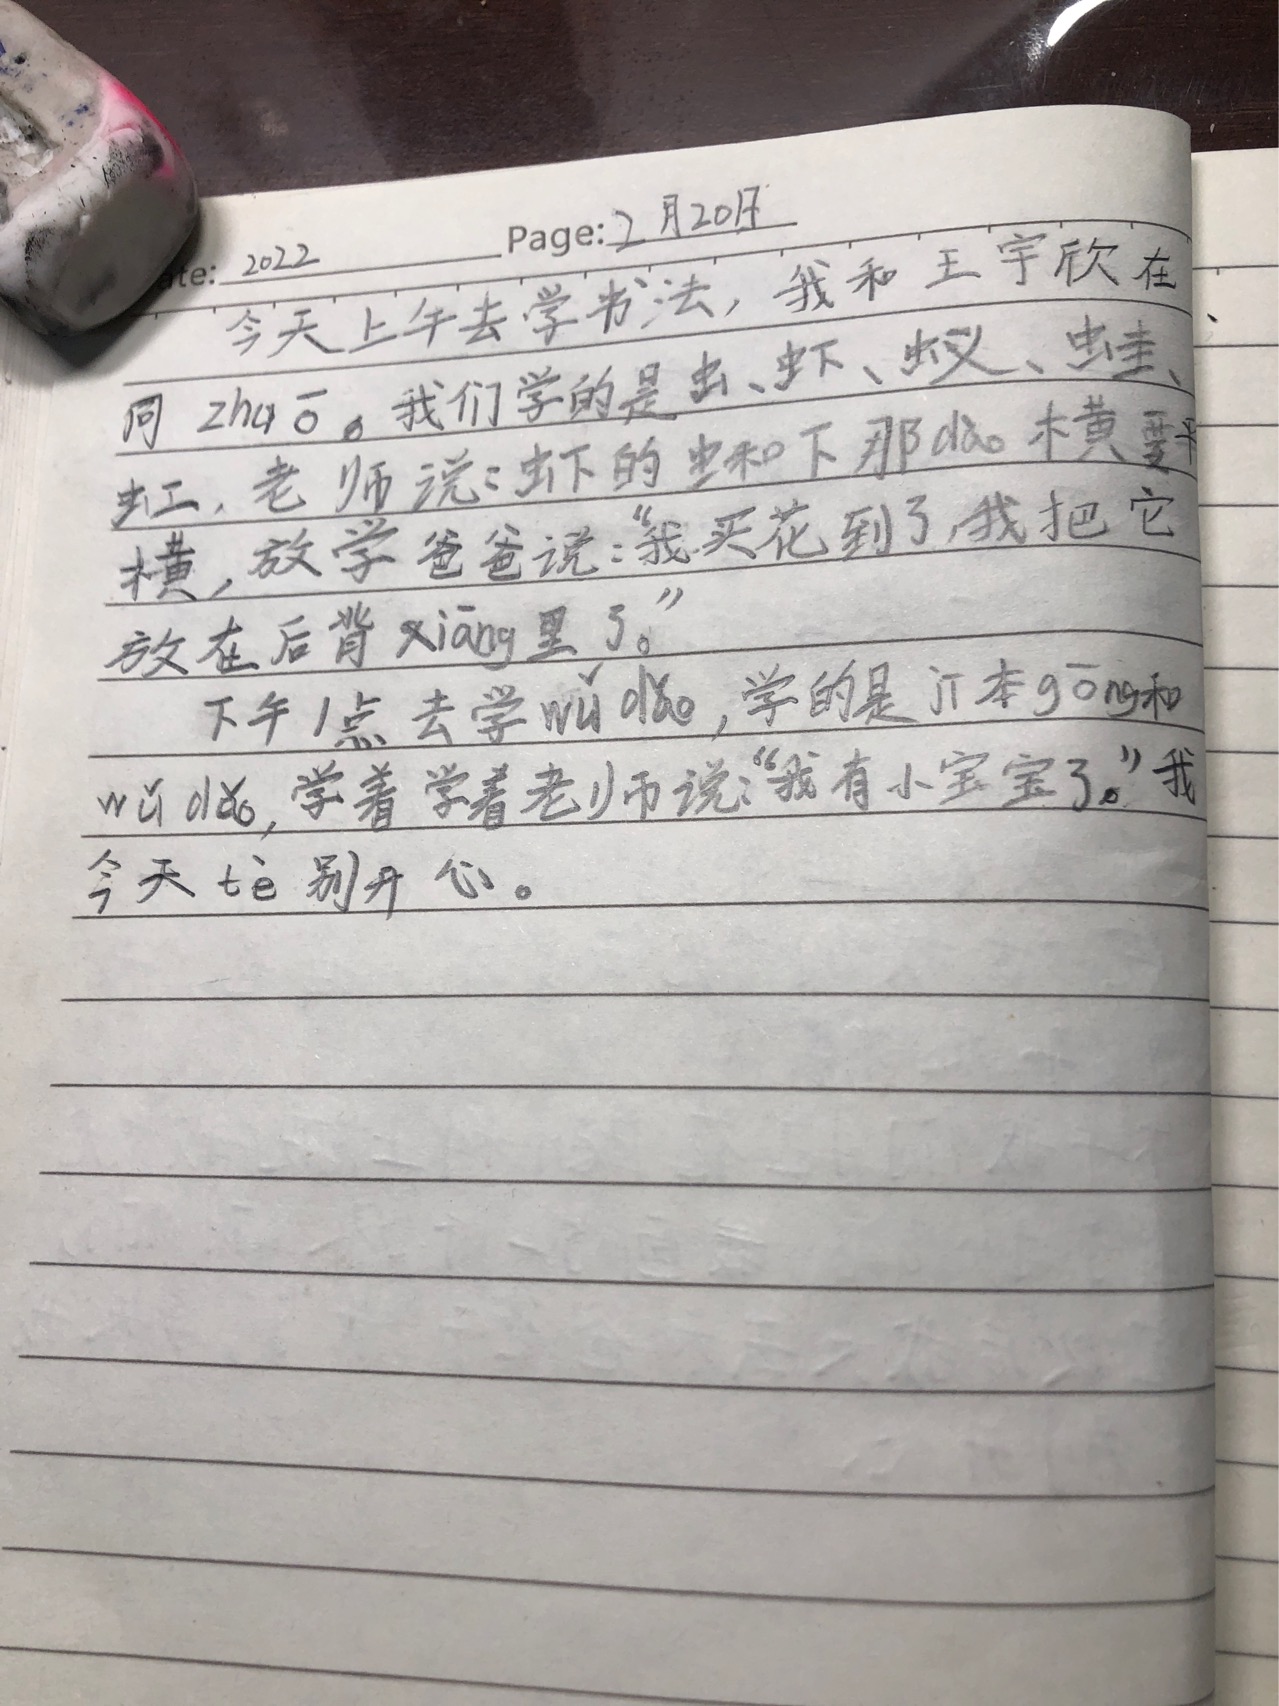 ate: 2022 Page: 2月20日
今天上午去学书法，我和王宇欣在
同zhuō。我们学的是虫、虾、蚁、蛙、
虹，老师说：虾的虫和下那dào横要平
横，放学爸爸说：“我买花到了，我把它
放在后背xiāng里了。”
下午1点去学wǔ dǎo，学的是丌本gōng和
wǔ dǎo，学着学着老师说：“我有小宝宝了。”我
今天tè别开心。